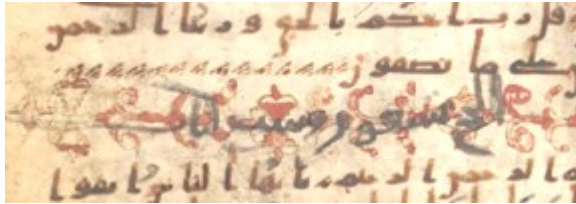 قل رب احكم بالحق و ربنا الرحمن
على ما تصفون
الحج سبعون وست ايات
الرحمن الرحيم يايها الناس اتقوا